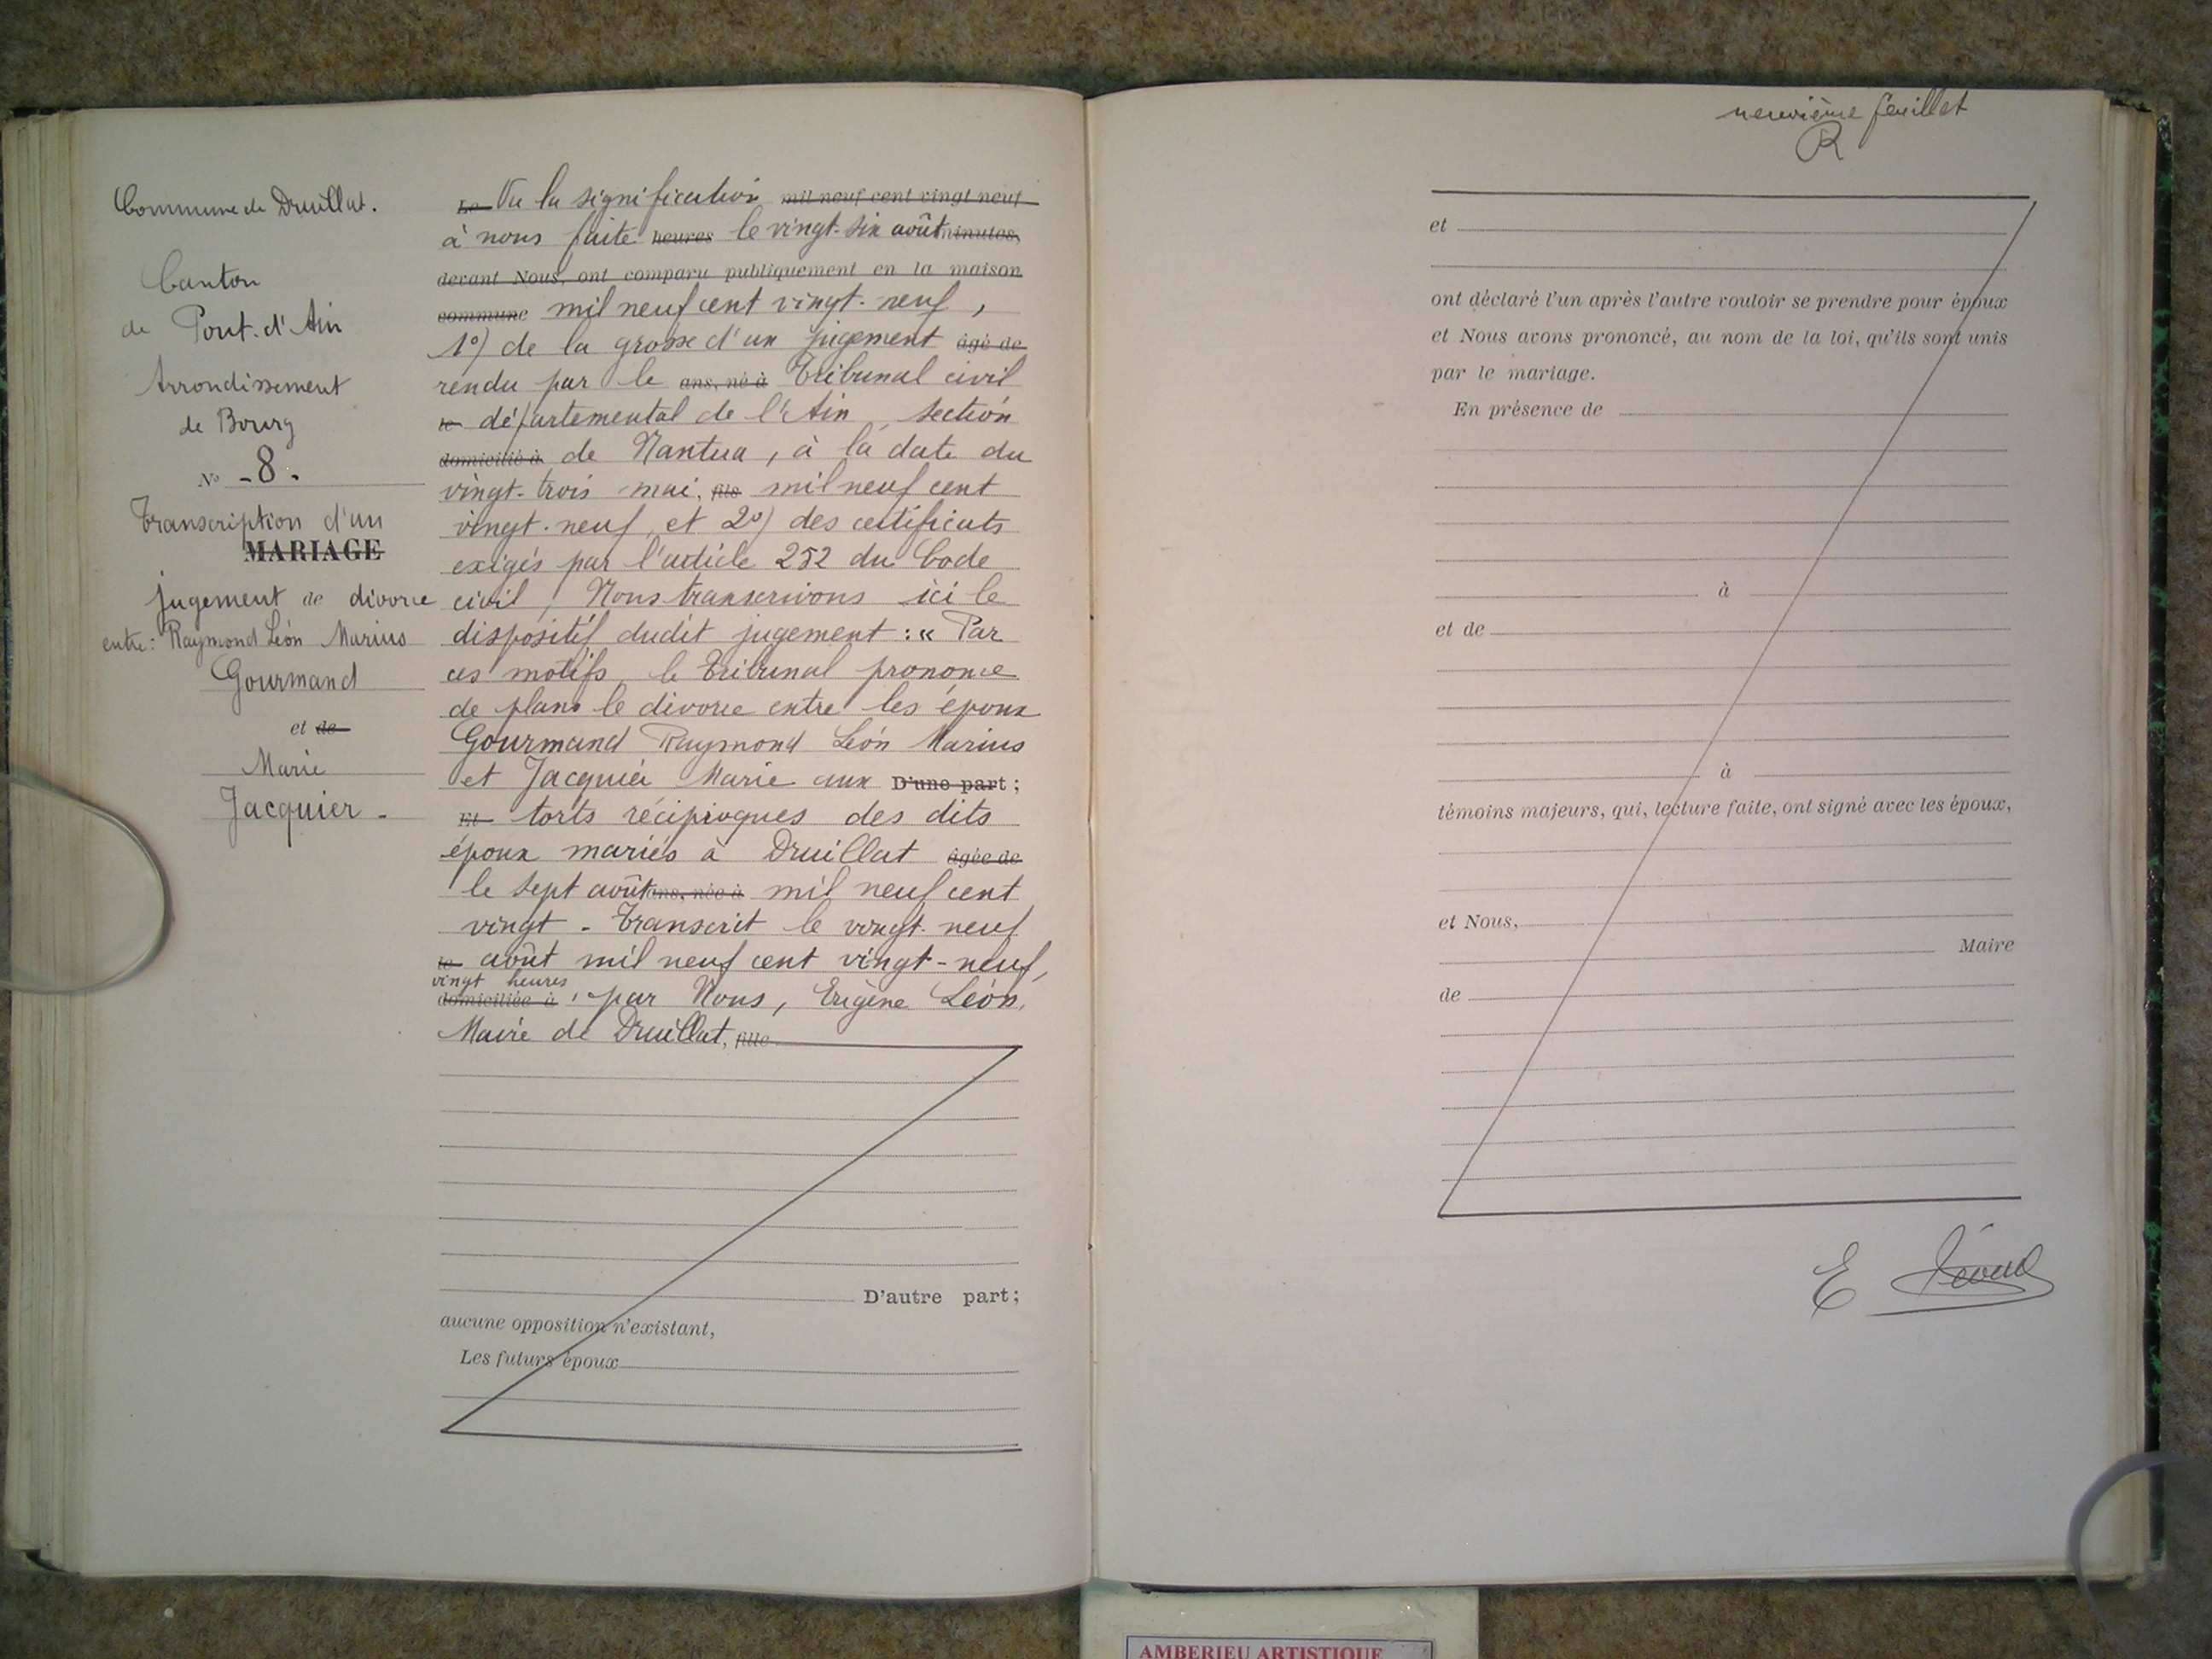 Commune de Druillat.
Canton
de Pont-d'Ain
Arrondissement
de Bourg
N° -8.
Transcription d'un
MARIAGE
jugement de divorce
entre: Raymond Léon Marius
Gourmand
et de
Marie
Jacquier -
Le Vu la signification mil neuf cent vingt neuf
à nous faite heures le vingt-six août minutes,
devant Nous, ont comparu publiquement en la maison
commune mil neuf cent vingt-neuf,
1°) de la grosse d'un jugement âgé de
rendu par le ans, né à Tribunal civil
le départemental de l'Ain, section
domicilié à de Nantua, à la date du
vingt-trois mai, fils mil neuf cent
vingt-neuf, et 2°) des certificats
exigés par l'article 252 du Code
civil, Nous transcrivons ici le
dispositif dudit jugement : « Par
ces motifs, le Tribunal prononce
de plano le divorce entre les époux
Gourmand Raymond Léon Marius
et Jacquier Marie aux D'une part ;
Et torts réciproques des dits
époux mariés à Druillat âgée de
le sept août ans, née à mil neuf cent
vingt - Transcrit le vingt-neuf
le août mil neuf cent vingt-neuf,
vingt heures
domiciliée à, par Nous, Eugène Léon,
Maire de Druillat, fille
D'autre part ;
aucune opposition n'existant,
Les futurs époux
neuvième feuillet
R
et
ont déclaré l'un après l'autre vouloir se prendre pour époux
et Nous avons prononcé, au nom de la loi, qu'ils sont unis
par le mariage.
En présence de
à
et de
à
témoins majeurs, qui, lecture faite, ont signé avec les époux,
et Nous,
Maire
de
E
AMBERIEU ARTISTIQUE